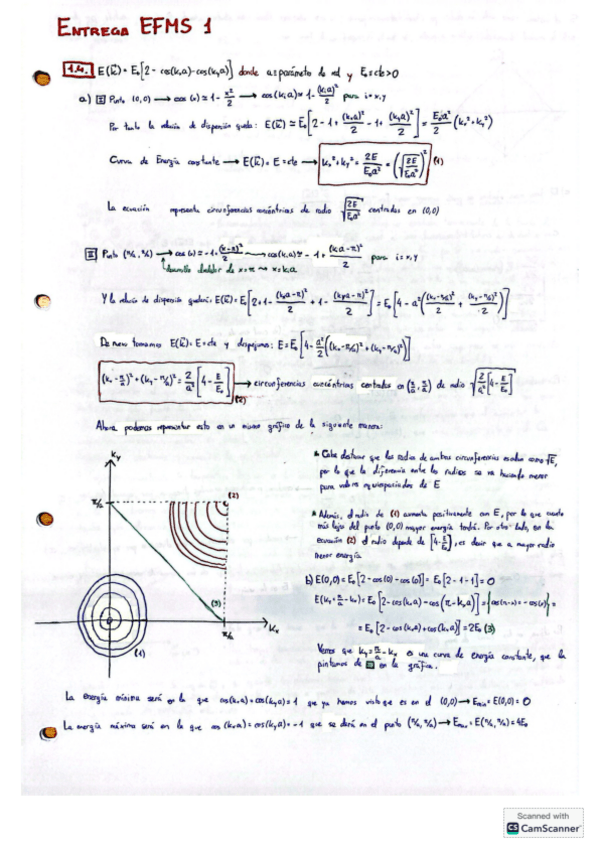 ENTREGA EFMS 1
1.4. E(k̄) = E₀[2 - cos(kₓa) - cos(k_y a)] donde a = parámetro de red y E₀ = cte > 0
a) I Punto (0,0) → cos(x) ≈ 1 - x²/2 → cos(kᵢa) ≈ 1 - (kᵢa)²/2 para i = x,y
Por tanto la relación de dispersión queda: E(k̄) ≃ E₀[2 - 1 + (kₓa)²/2 - 1 + (k_y a)²/2] = E₀a²/2 (kₓ² + k_y²)
Curva de Energía constante → E(k̄) = E = cte → kₓ² + k_y² = 2E/E₀a² = (√(2E/E₀a²))² (1)
La ecuación representa circunferencias concéntricas de radio √(2E/E₀a²) centradas en (0,0)
II Punto (π/a, π/a) → cos(x) ≈ -1 + (x-π)²/2 → cos(kᵢa) ≈ -1 + (kᵢa-π)²/2 para i = x,y
desarrollo alrededor de x = π → x = kᵢa
Y la relación de dispersión quedaría: E(k̄) = E₀[2 + 1 - (kₓa-π)²/2 + 1 - (k_y a-π)²/2] = E₀[4 - a²((kₓ-π/a)²/2 + (k_y-π/a)²/2)]
De nuevo tomamos E(k̄) = E = cte y despejamos: E = E₀[4 - a²/2((kₓ-π/a)² + (k_y-π/a)²)]
(kₓ - π/a)² + (k_y - π/a)² = 2/a² [4 - E/E₀] (2) → circunferencias concéntricas centradas en (π/a, π/a) de radio √(2/a²[4 - E/E₀])
Ahora podemos representar esto en un mismo gráfico de la siguiente manera:
k_y
π/a
(2)
(3)
(1)
π/a
kₓ
* Cabe destacar que los radios de ambas circunferencias escalan como √E,
por lo que la diferencia entre los radios se va haciendo menor
para valores equiespaciados de E
* Además, el radio de (1) aumenta positivamente con E, por lo que cuanto
más lejos del punto (0,0) mayor energía tendrá. Por otro lado, en la
ecuación (2) el radio depende de [4 - E/E₀], es decir que a mayor radio
menor energía.
b) E(0,0) = E₀[2 - cos(0) - cos(0)] = E₀[2 - 1 - 1] = 0
E(k_y = π/a - kₓ) = E₀[2 - cos(kₓa) - cos(π - kₓa)] = {cos(π-x) = -cos(x)} =
= E₀[2 - cos(kₓa) + cos(kₓa)] = 2E₀ (3)
Vemos que k_y = π/a - kₓ es una curva de energía constante, que la
pintamos de en la gráfica.
La energía mínima será en la que cos(kₓa) = cos(k_y a) = 1 que ya hemos visto que es en el (0,0) → Eₘᵢₙ = E(0,0) = 0
La energía máxima será en la que cos(kₓa) = cos(k_y a) = -1 que se dará en el punto (π/a, π/a) → Eₘₐₓ = E(π/a, π/a) = 4E₀
Scanned with
CS CamScanner